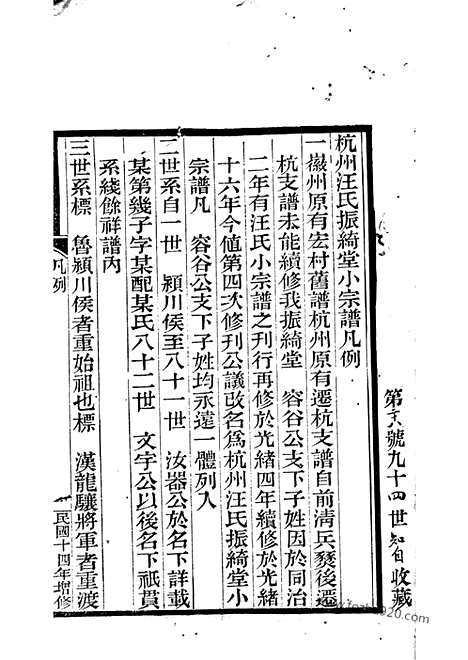 第六號九十四世智收藏
杭州汪氏振綺堂小宗譜凡例
一徽州原有宏村舊譜杭州原有遷杭支譜自前清兵燹後遷
杭支譜未能續修我振綺堂 容谷公支下子姓因於同治
二年有汪氏小宗譜之刊行再修於光緒四年續修於光緒
十六年今値第四次修刊公議改名爲杭州汪氏振綺堂小
宗譜凡 容谷公支下子姓均永遠一體列入
二世系自一世 潁川侯至八十一世 汝器公於名下詳載
某第幾子字某配某氏八十二世 文字公以後名下祇貫
系綫餘祥譜內
三世系標 魯潁川侯者重始祖也標 漢龍驤將軍者重渡
凡例
民國十四年增修